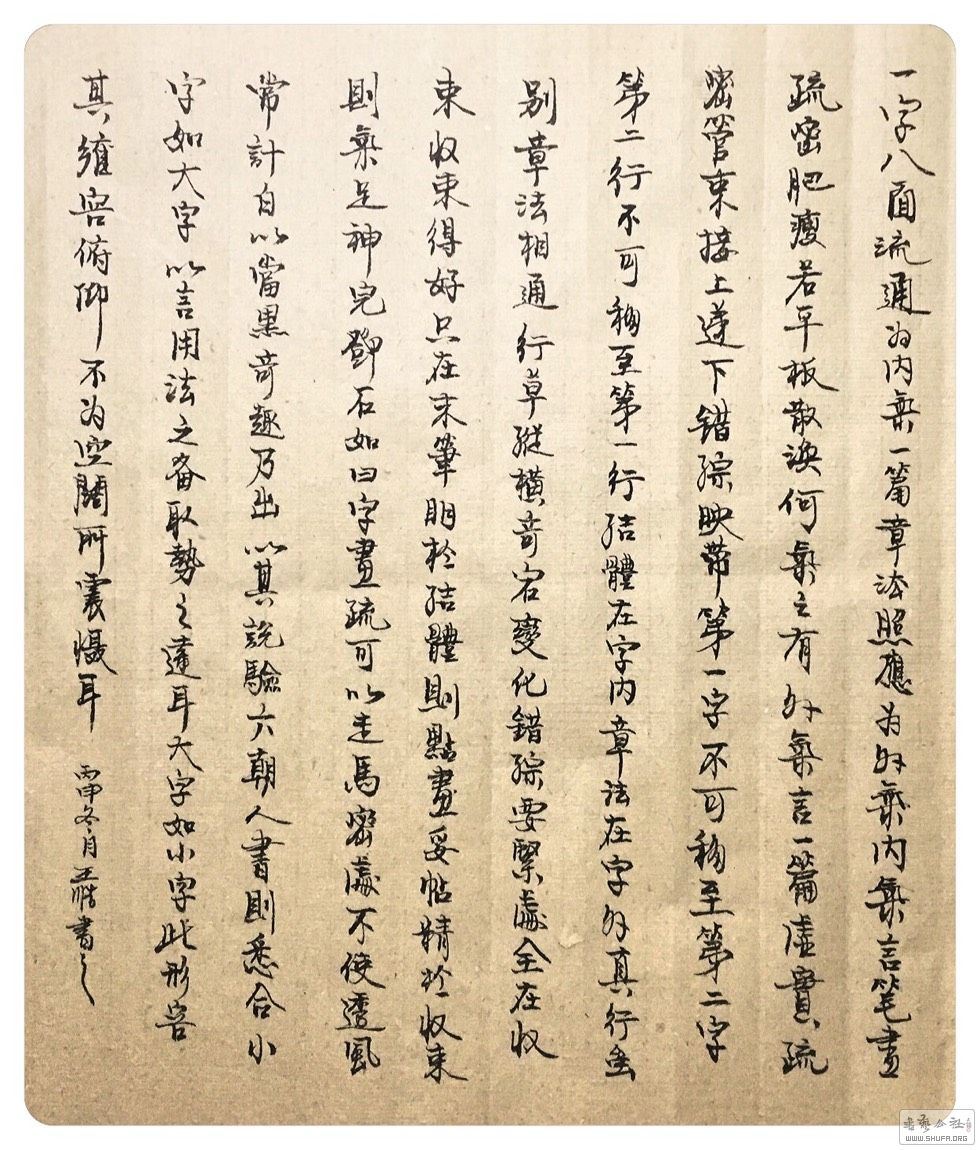 一字八面流通为内氣一篇章法照應为外氣内氣言笔畫
疏密肥瘦若平板散渙何氣之有外氣言一篇虛實疏
密管束接上遞下錯綜映帶第一字不可移至第二字
第二行不可移至第一行结體在字内章法在字外真行雖
别章法相通行草縱橫奇宕變化錯綜要緊處全在收
束收束得好只在末筆眀於结體則點畫妥帖精於收束
則氣足神完鄧石如曰字畫疏可以走馬密處不使透風
常計白以當黑奇趣乃出以其說驗六朝人書則悉合小
字如大字以言用法之备取勢之遠耳大字如小字此形容
其雍容俯仰不为空闊所震慑耳
丙申冬月王浩書之
書藝公社
WWW.SHUFA.ORG